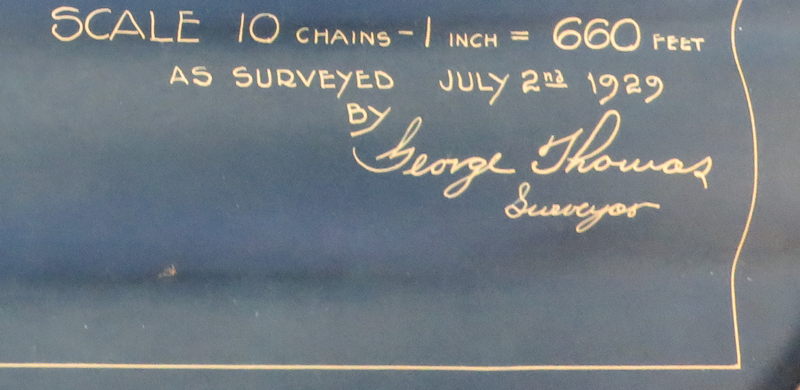 SCALE 10 CHAINS - 1 INCH = 660 FEET
AS SURVEYED JULY 2nd 1929
BY
George Thomas
Surveyor